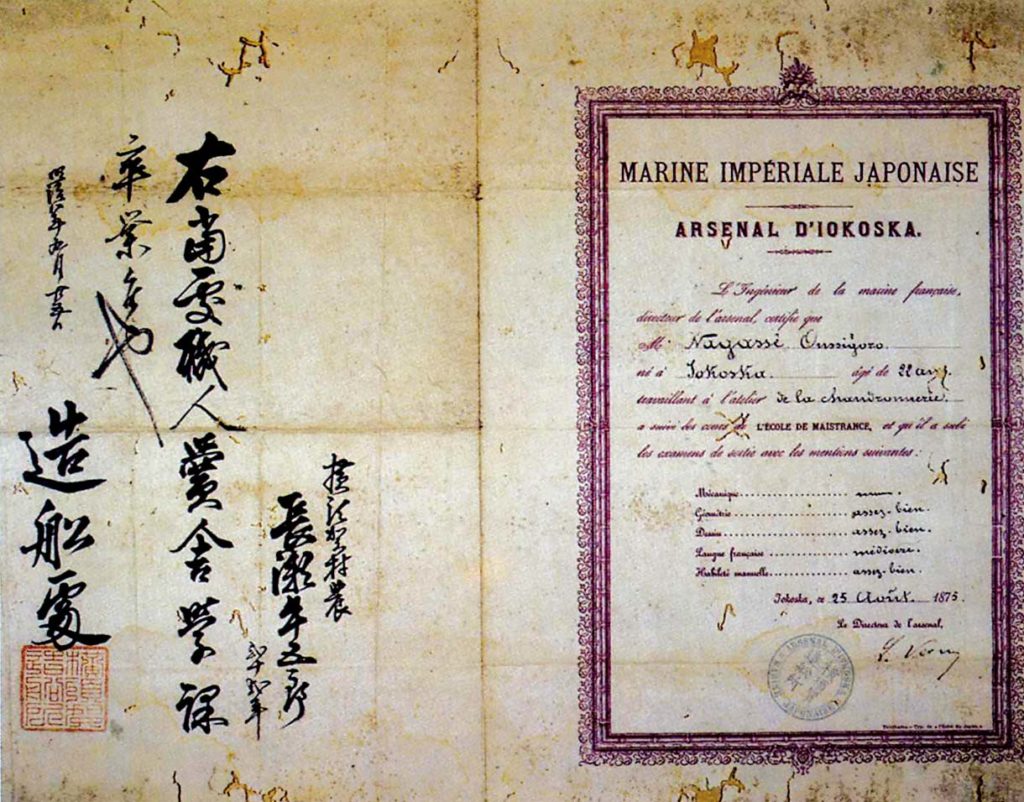 MARINE IMPÉRIALE JAPONAISE
ARSENAL D'IOKOSKA.
L'Ingénieur de la marine française,
directeur de l'arsenal, certifie que
M. Nagassé Oussigoro
né à Iokoska. âgé de 22 ans.
travaillant à l'atelier de la chaudronnerie.
a suivi les cours de L'ÉCOLE DE MAISTRANCE, et qu'il a subi
les examens de sortie avec les mentions suivantes :
Mécanique
Géométrie assez-bien.
Dessin assez-bien.
Langue française médiocre.
Habileté manuelle assez-bien.
Iokoska, ce 25 Août 1875.
Le Directeur de l'arsenal,
L. Verny
長瀬牛五郎
右當處職人黌舎學課
卒業候也
明治八年
造船處